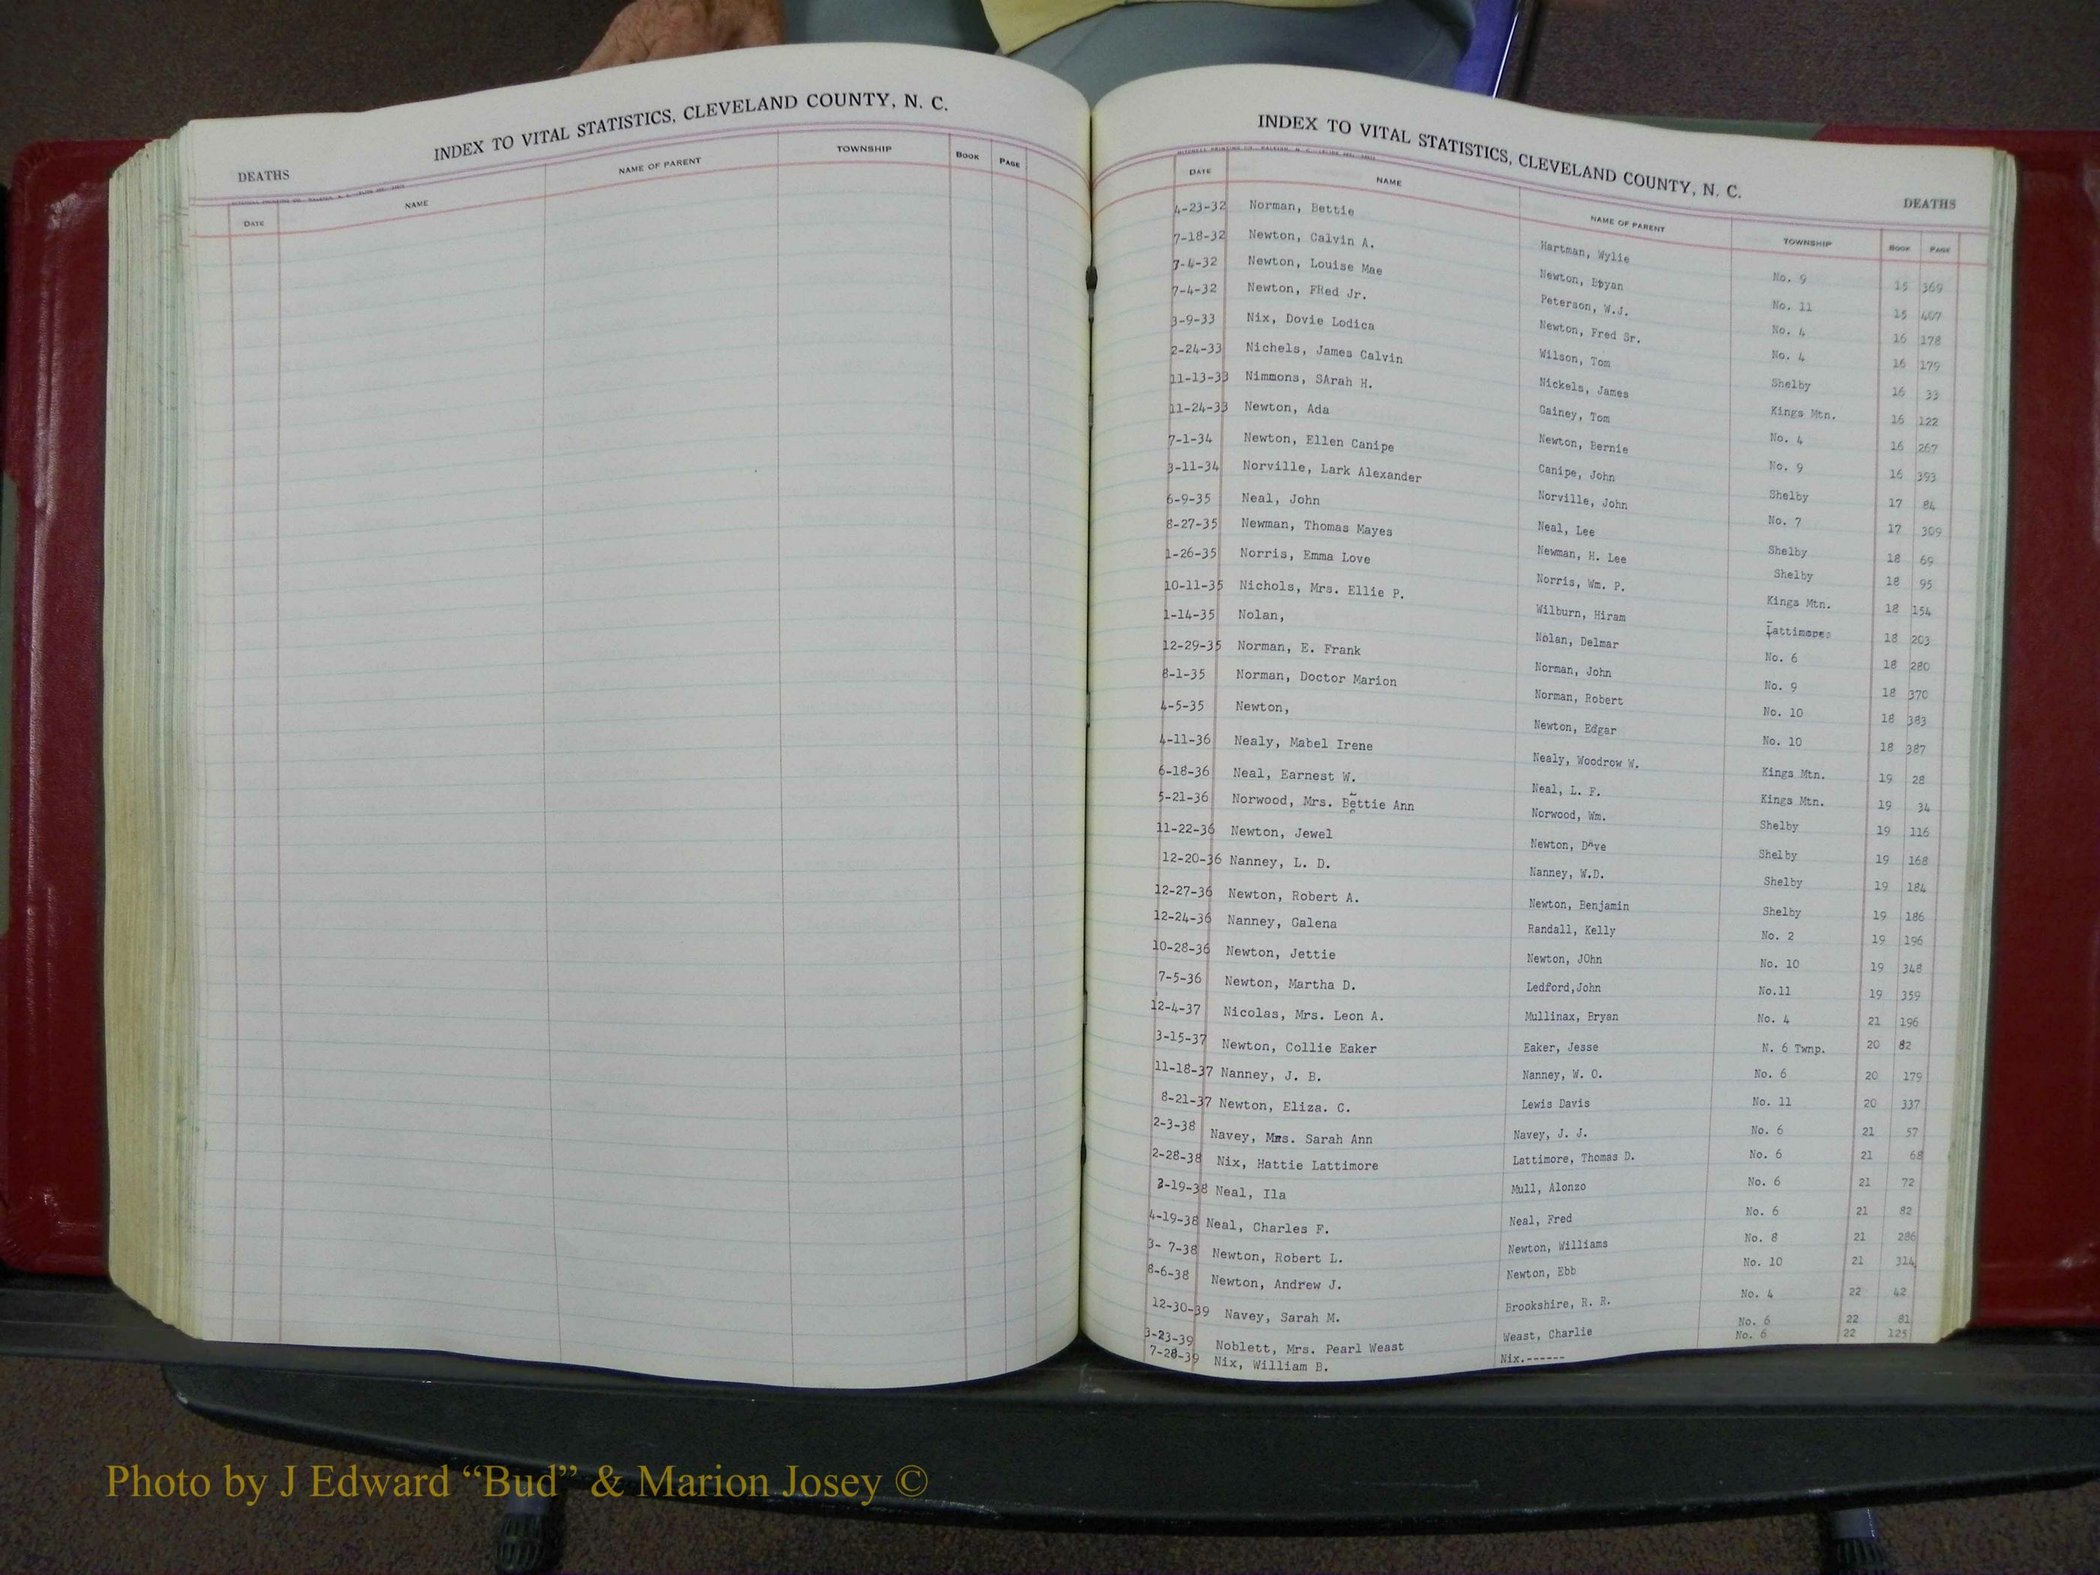 INDEX TO VITAL STATISTICS, CLEVELAND COUNTY, N. C.
DEATHS
DATE NAME NAME OF PARENT TOWNSHIP BOOK PAGE
INDEX TO VITAL STATISTICS, CLEVELAND COUNTY, N. C.
DEATHS
DATE NAME NAME OF PARENT TOWNSHIP BOOK PAGE
4-23-32 Norman, Bettie Hartman, Wylie No. 9 15 369
7-18-32 Newton, Calvin A. Newton, Bryan No. 11 15 407
7-4-32 Newton, Louise Mae Peterson, W.J. No. 4 16 178
7-4-32 Newton, FRed Jr. Newton, Fred Sr. No. 4 16 179
3-9-33 Nix, Dovie Lodica Wilson, Tom Shelby 16 33
2-24-33 Nichels, James Calvin Nickels, James Kings Mtn. 16 122
11-13-33 Nimmons, SArah H. Gainey, Tom No. 4 16 267
11-24-33 Newton, Ada Newton, Bernie No. 9 16 393
7-1-34 Newton, Ellen Canipe Canipe, John Shelby 17 84
3-11-34 Norville, Lark Alexander Norville, John No. 7 17 309
6-9-35 Neal, John Neal, Lee Shelby 18 69
8-27-35 Newman, Thomas Mayes Newman, H. Lee Shelby 18 95
1-26-35 Norris, Emma Love Norris, Wm. P. Kings Mtn. 18 154
10-11-35 Nichols, Mrs. Ellie P. Wilburn, Hiram Lattimores 18 203
1-14-35 Nolan, Nolan, Delmar No. 6 18 280
12-29-35 Norman, E. Frank Norman, John No. 9 18 370
8-1-35 Norman, Doctor Marion Norman, Robert No. 10 18 383
4-5-35 Newton, Newton, Edgar No. 10 18 387
4-11-36 Nealy, Mabel Irene Nealy, Woodrow W. Kings Mtn. 19 28
6-18-36 Neal, Earnest W. Neal, L. F. Kings Mtn. 19 34
5-21-36 Norwood, Mrs. Bettie Ann Norwood, Wm. Shelby 19 116
11-22-36 Newton, Jewel Newton, DAve Shelby 19 168
12-20-36 Nanney, L. D. Nanney, W.D. Shelby 19 184
12-27-36 Newton, Robert A. Newton, Benjamin Shelby 19 186
12-24-36 Nanney, Galena Randall, Kelly No. 2 19 196
10-28-36 Newton, Jettie Newton, JOhn No. 10 19 348
7-5-36 Newton, Martha D. Ledford,John No.11 19 359
12-4-37 Nicolas, Mrs. Leon A. Mullinax, Bryan No. 4 21 196
3-15-37 Newton, Collie Eaker Eaker, Jesse N. 6 Twnp. 20 82
11-18-37 Nanney, J. B. Nanney, W. O. No. 6 20 179
8-21-37 Newton, Eliza. C. Lewis Davis No. 11 20 337
2-3-38 Navey, Mrs. Sarah Ann Navey, J. J. No. 6 21 57
2-28-38 Nix, Hattie Lattimore Lattimore, Thomas D. No. 6 21 68
2-19-38 Neal, Ila Mull, Alonzo No. 6 21 72
4-19-38 Neal, Charles F. Neal, Fred No. 6 21 82
3- 7-38 Newton, Robert L. Newton, Williams No. 8 21 286
8-6-38 Newton, Andrew J. Newton, Ebb No. 10 21 314
12-30-39 Navey, Sarah M. Brookshire, R. R. No. 4 22 42
3-23-39 Noblett, Mrs. Pearl Weast Weast, Charlie No. 6 22 81
7-28-39 Nix, William B. Nix.------ No. 6 22 125
Photo by J Edward “Bud” & Marion Josey ©